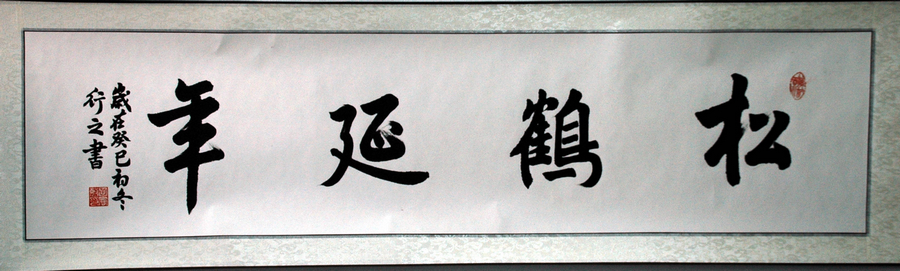 松鶴延年
歲在癸巳初冬
行之書